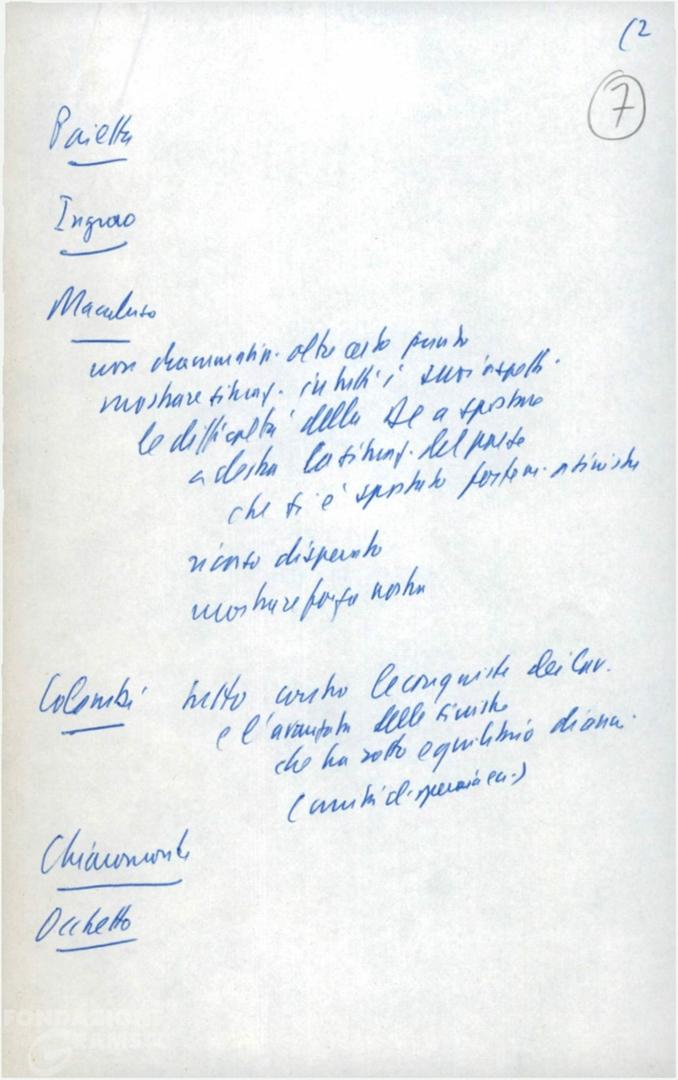 (2
7
Paietta
Ingrao
Macaluso
non drammatiz. oltre certo punto
mostrare situaz. in tutti i suoi aspetti.
le difficoltà della DC a spostare
a destra la situaz. del paese
che si è spostato fortem. a sinistra
ricorso disperato
mostrare forza nostra
Colombi tutto contro le conquiste dei lav.
e l'avanzata delle sinistre
che ha rotto equilibrio di
(unità
Chiaromonte
Occhetto
FONDAZIONE
GRAMSCI